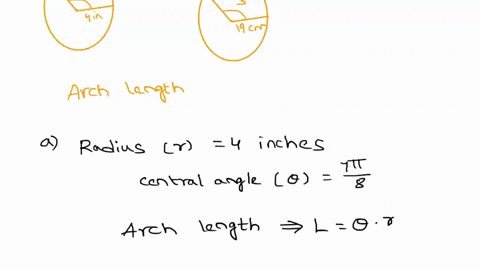 4 in
19 cm
Arch length
a) Radius (r) = 4 inches
central angle (θ) = 7π/8
Arch length ⇒ L = θ·r